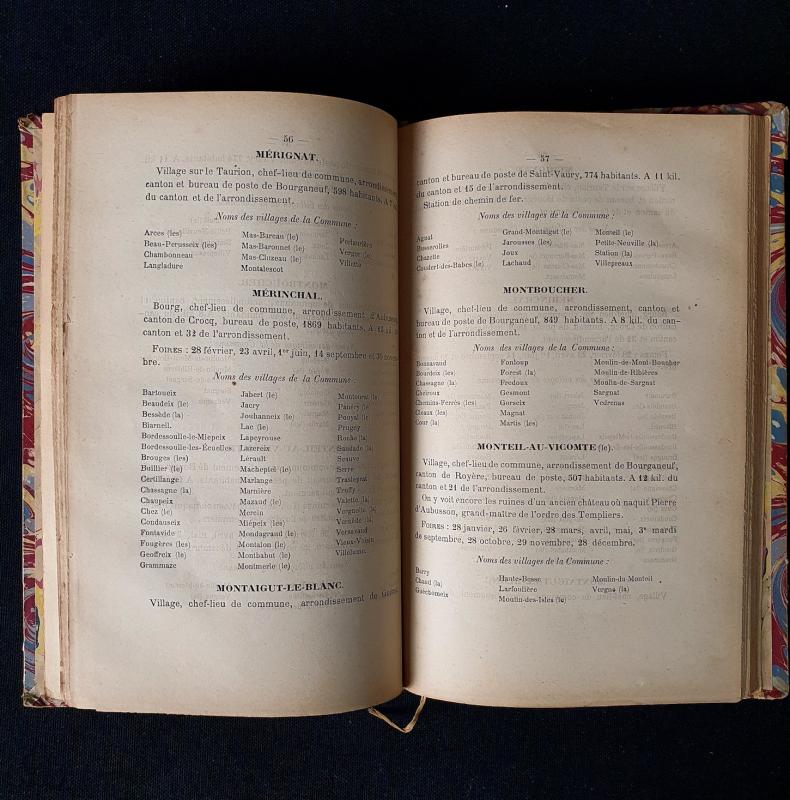 — 56 —
MÉRIGNAT.
Village sur le Taurion, chef-lieu de commune, arrondissement
canton et bureau de poste de Bourganeuf, 598 habitants. A 7
du canton et de l'arrondissement.
Noms des villages de la Commune :
Arces (les) Mas-Bareau (le)
Beau-Perusseix (les) Mas-Baronnet (le)
Chambonneau Mas-Cluzeau (le) Vergne (la)
Langladure Montalescot Villette
MÉRINCHAL.
Bourg, chef-lieu de commune, arrondissement d'Aubusson
canton de Crocq, bureau de poste, 1869 habitants. A kil.
canton et 32 de l'arrondissement.
FOIRES : 28 février, 23 avril, 1er juin, 14 septembre et 30 novem-
bre.
Noms des villages de la Commune :
Bartoueix Jabert (le) Montourat (le)
Beaudeix (le) Jacry Panéry (le)
Bessède (la) Jouhanneix (le) Pouyal (le)
Biarneil. Lac (le) Prugny
Bordessoulle-le-Miepeix Lapeyrouse Roche (la)
Bordessoulle-les-Écuelles Lazereix Saudade (la)
Brouges (les) Lérault Seauve
Buillier (le) Macheptel (le) Serre
Certillange Marlange
Chassagne (la) Marnière Truffy
Chaupeix Mazaud (le) Valette (la)
Chez (le) Merein
Condauseix Miépeix (les) (la)
Fontavide Mondagraud (le) Versavaud
Fougères (les) Montalon (le) Vieux-Voisin
Geoffreix (le) Montbabut (le)
Grammaze Montmerle (le)
MONTAIGUT-LE-BLANC.
Village, chef-lieu de commune, arrondissement de Guéret,
— 57 —
canton et bureau de poste de Saint-Vaury, 774 habitants. A 11 kil.
du canton et 15 de l'arrondissement.
Station de chemin de fer.
Noms des villages de la Commune :
Agnat Grand-Montaigut (le) Monteil (le)
Busserolles Jarousses (les) Petite-Neuville (la)
Chazette Joux Station (la)
Coudert-des-Babes (le) Lachaud Villepreaux
MONTBOUCHER.
Village, chef-lieu de commune, arrondissement, canton et
bureau de poste de Bourganeuf, 849 habitants. A 8 kil. du can-
ton et de l'arrondissement.
Noms des villages de la Commune :
Bonnavaud Fonloup Moulin-de-Mont-Boucher
Bourdeix (les) Forest (la) Moulin-de-Ribières
Chassagne (la) Fredoux Moulin-de-Sargnat
Cheiroux Gesmont Sargnat
Chemins-Ferrés (les) Gorseix Védrenas
Cleaux (les) Magnat
Cour (la) Martis (les)
MONTEIL-AU-VICOMTE (le).
Village, chef-lieu de commune, arrondissement de Bourganeuf,
canton de Royère, bureau de poste, 507 habitants. A 12 kil. du
canton et 21 de l'arrondissement.
On y voit encore les ruines d'un ancien château où naquit Pierre
d'Aubusson, grand-maître de l'ordre des Templiers.
FOIRES : 28 janvier, 26 février, 28 mars, avril, mai, 3e mardi
de septembre, 28 octobre, 29 novembre, 28 décembre.
Noms des villages de la Commune :
Barry Haute-Besse Moulin-du-Monteil
Chaud (la) Larfoulière Vergne (la)
Guéchomeix Moulin-des-Isles (le)